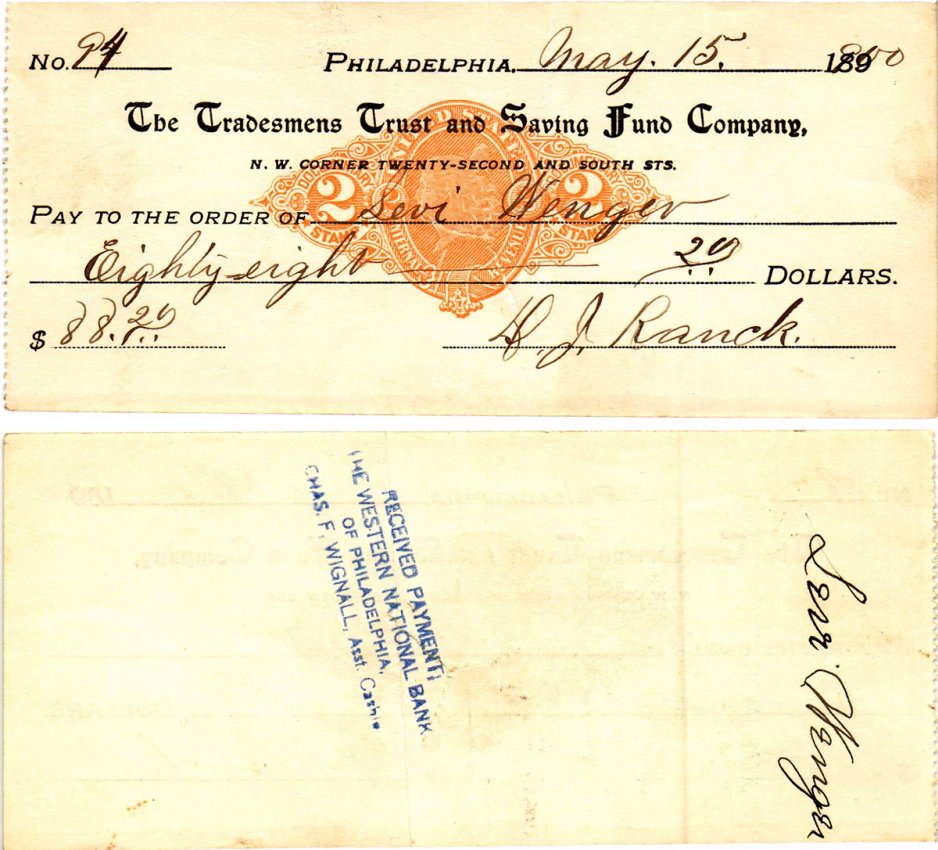 No. 94 Philadelphia, May. 15. 1900
The Tradesmens Trust and Saving Fund Company,
N. W. CORNER TWENTY-SECOND AND SOUTH STS.
PAY TO THE ORDER OF Levi Wenger
Eighty-eight 20 DOLLARS.
$ 88.20
D. J. Ranck.
2 2
UNITED STATES
INTERNAL REVENUE
RECEIVED PAYMENT;
THE WESTERN NATIONAL BANK
OF PHILADELPHIA,
CHAS. F. WIGNALL, Asst. Cashie
Levi Wenger